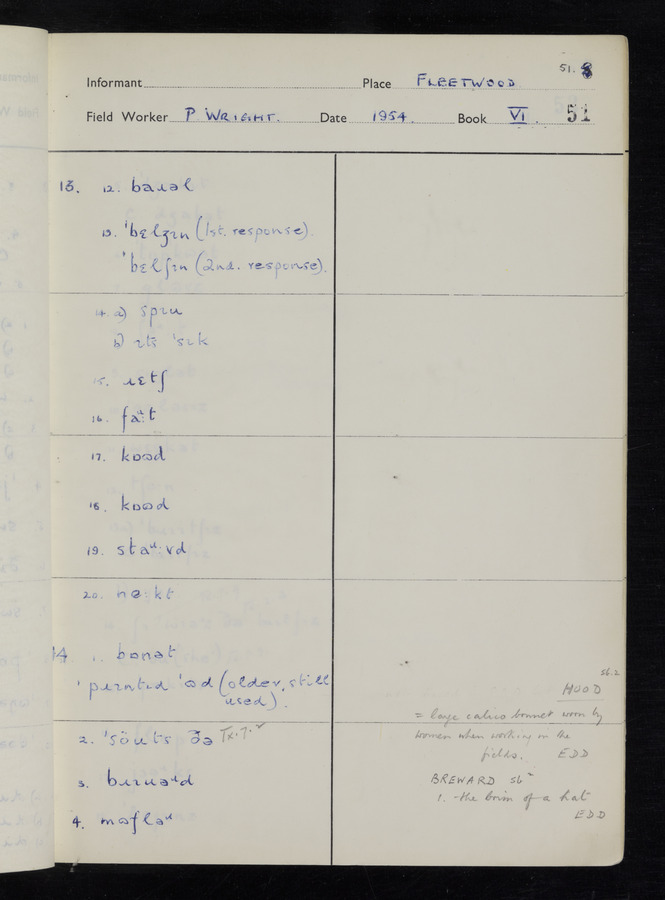 51. 8
Informant Place FLEETWOOD
Field Worker P. WRIGHT. Date 1954. Book VI. 51
13. 12. baɹəl
13. 'bɛlʒɪn (1st. response).
'bɛlʃɪn (2nd. response).
14. a) spɪu
b) 'sɪk
15. ɹɛtʃ
16. fa:t
17. kʊəd
18. kʊəd
19. sta:vd
20. nɛ:kt
14 1. bɒnət
'pɪɹntɪd 'ʊd (older, still
used).
2. ðə
3.
4. mʊflə
56.2
HOOD
= large calico bonnet worn by
women when working in the
fields. EDD
BREWARD sb
1. -the brim of a hat
EDD